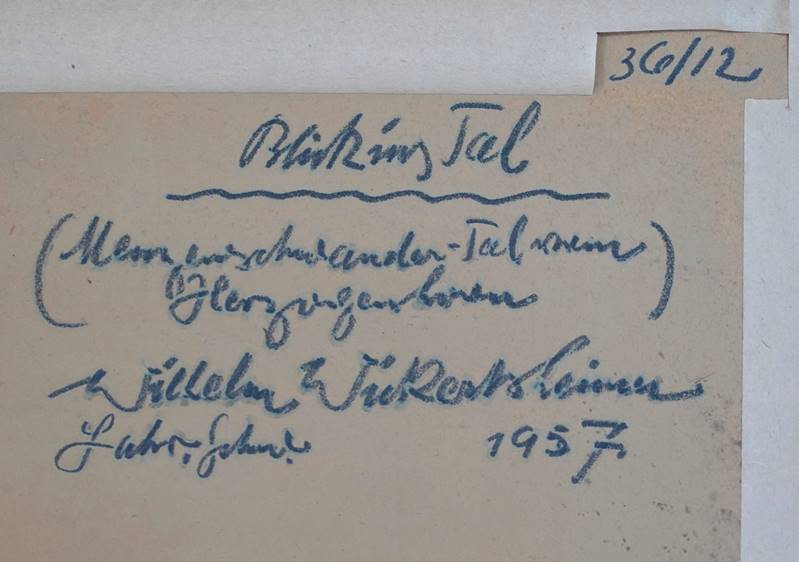 36/12
Blick ins Tal
(Menzenschwander-Tal vom
Herzogenhorn)
Wilhelm Wickertsheimer
Lahr. Schw. 1957